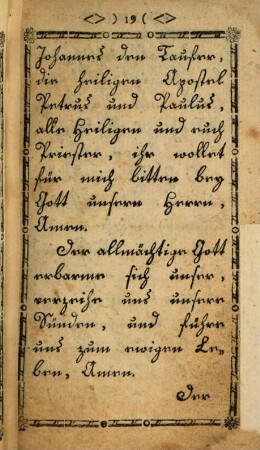 <> ) 19 ( <>
Johannes den Taufer,
die heiligen Apostel
Petrus und Paulus,
alle Heiligen und euch
Priester, ihr wollet
für mich bitten bey
Gott unsern Herrn,
Amen.
Der allmächtige Gott
erbarme sich unser,
verzeihe uns unsere
Sünden, und führe
uns zum ewigen Le-
ben, Amen.
Der